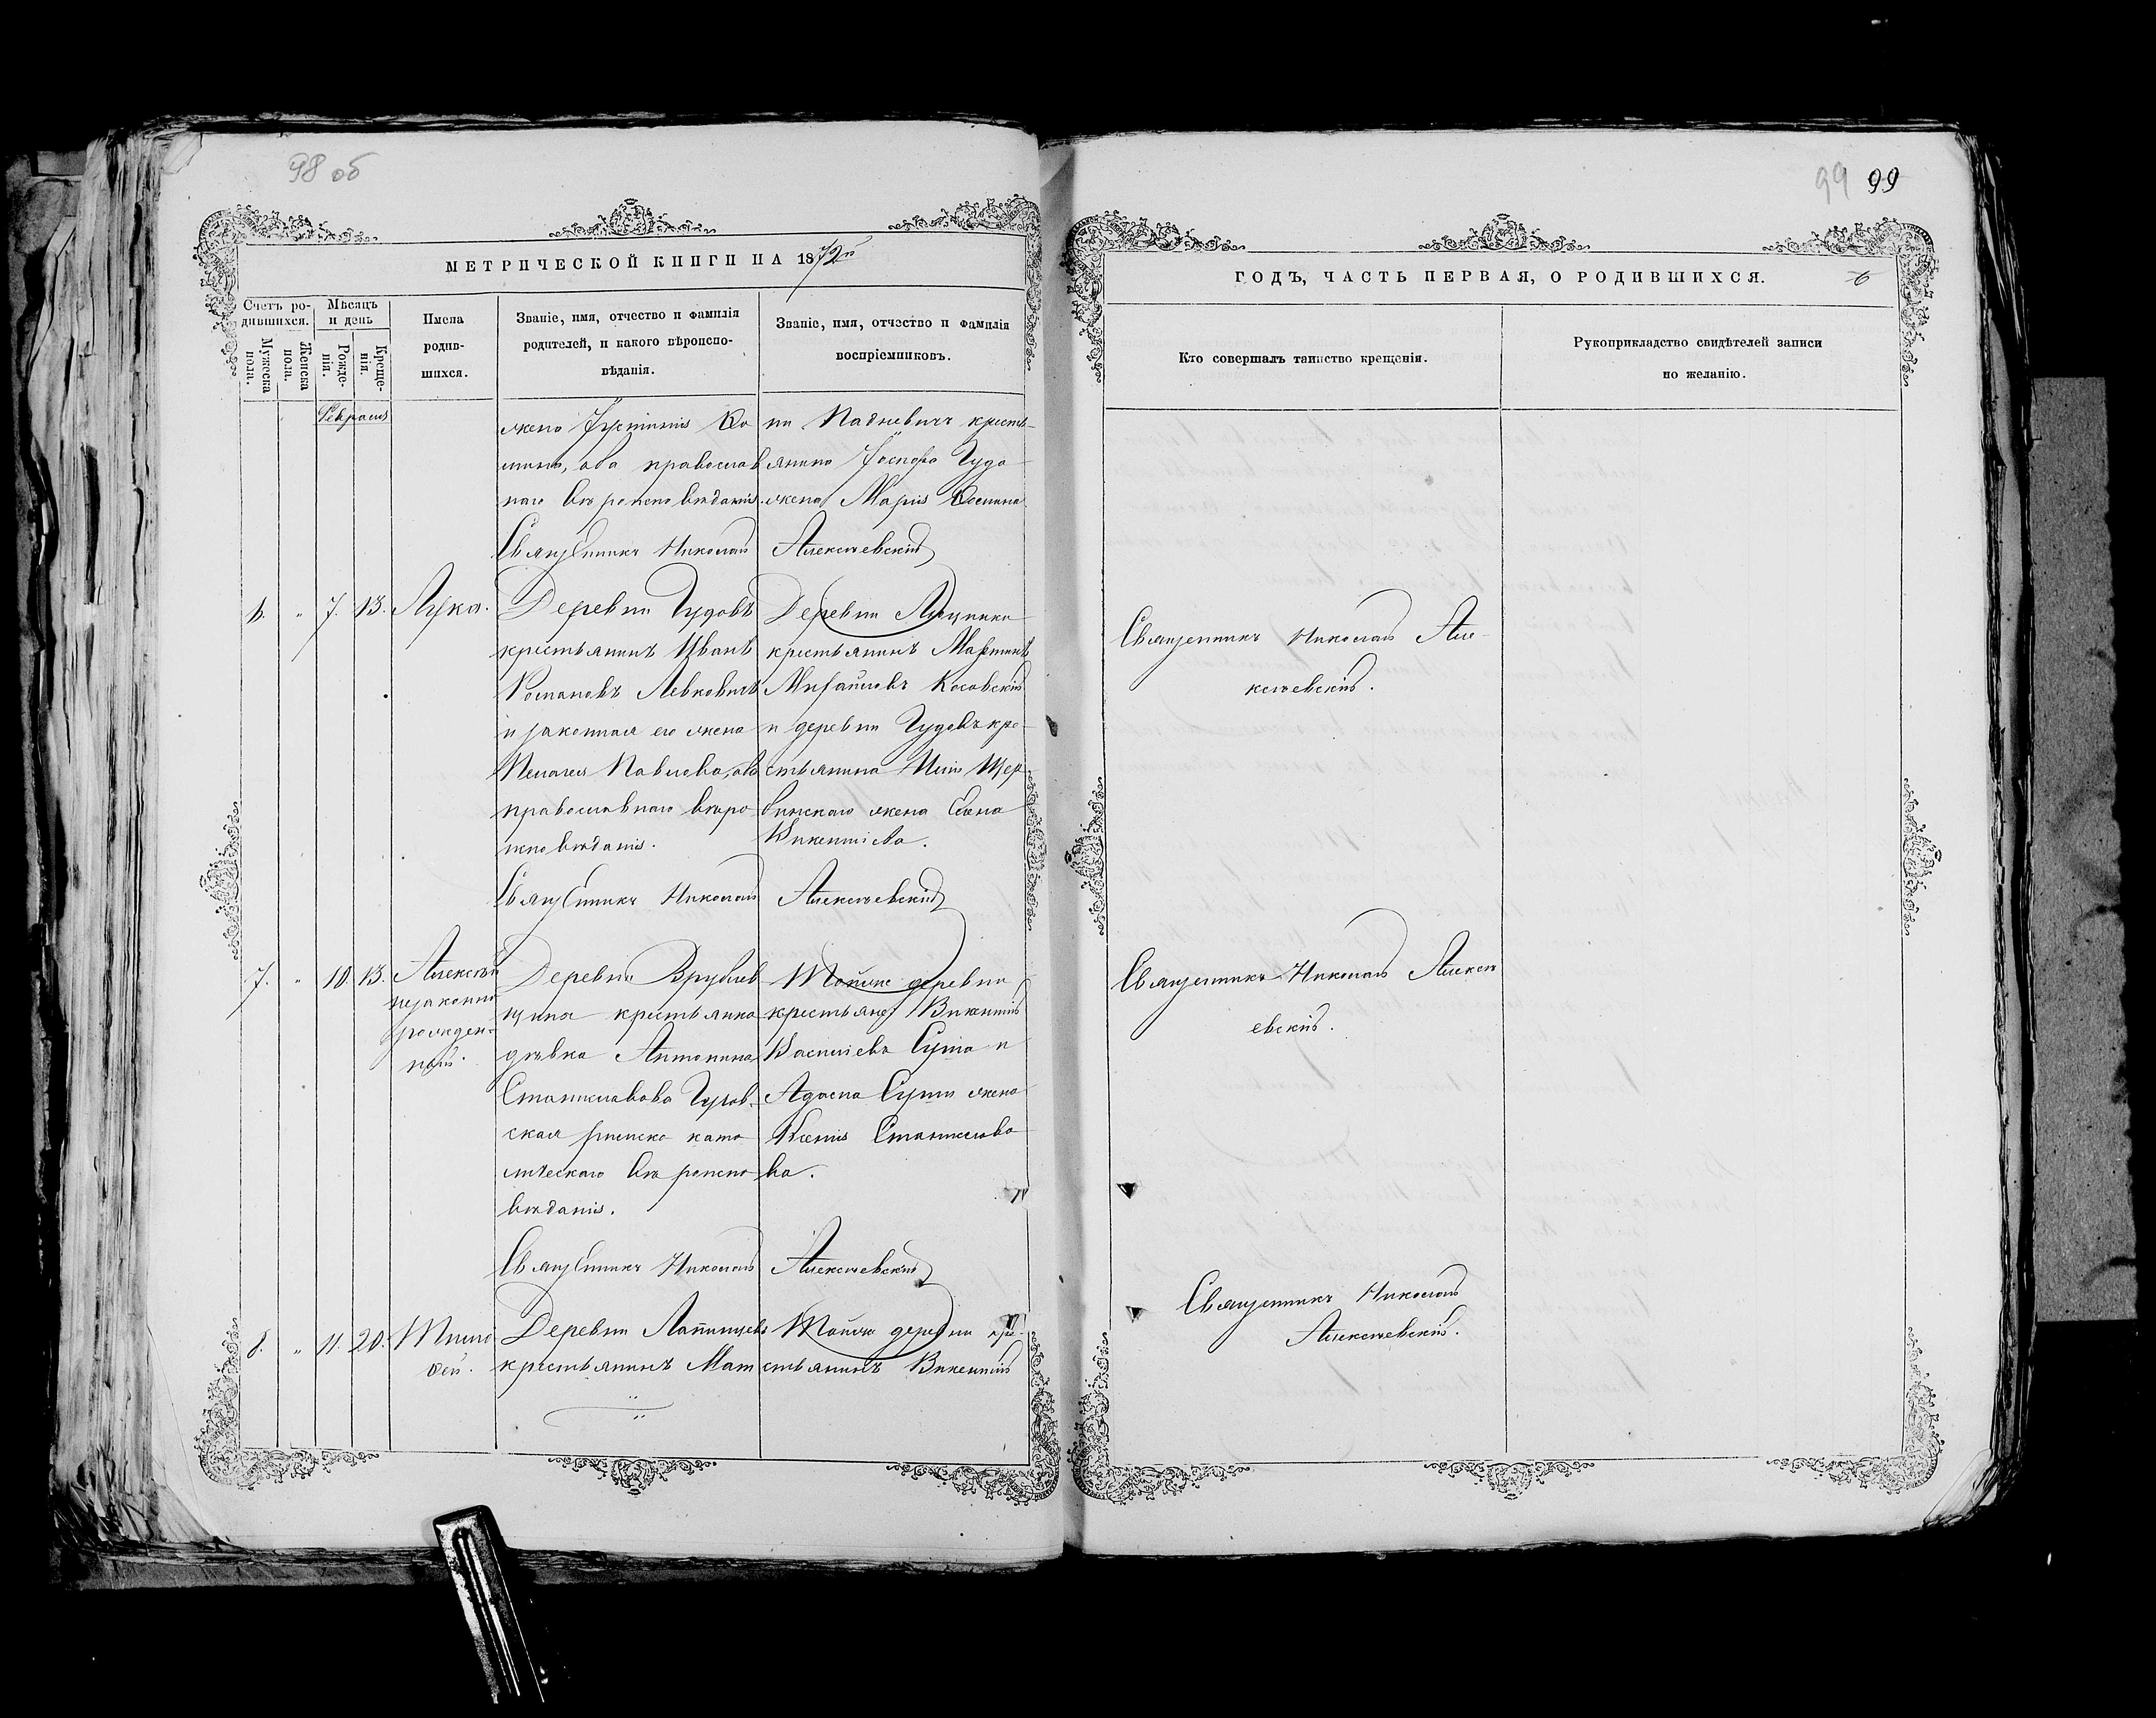 98 об
МЕТРИЧЕСКОЙ КНИГИ НА 1872й
Счетъ ро-
дившихся.
Мужеска
пола.
Женска
пола.
Мѣсяцъ
и день
Рожде-
нія.
Креще-
нія.
Имена
родив-
шихся.
Званіе, имя, отчество и фамилія
родителей, и какого вѣроиспо-
вѣданія.
Званіе, имя, отчество и фамилія
воспріемниковъ.
жена
оба православ
наго вѣроисповѣданія.
кресть-
янина
жена Марія
Священникъ Николай Алексѣевскій
6. " 7. 13. Лука.
Деревни Чудовъ
крестьянинъ Иванъ
Романовъ Левковичъ
и законная его жена
Пелагея Павлова, оба
православнаго вѣро
исповѣданія.
Деревни
крестьянинъ Мартинъ
Михайловъ Косовскій
и деревни Чудовъ кре-
стьянина
жена Елена
Викентіева.
Священникъ Николай Алексѣевскій
7. " 10. 13. Алексѣй
незаконно
рожден-
ной.
Деревни Врублев
щина крестьянка
дѣвка Антонина
Станиславова
ская римско като
лическаго вѣроиспо
вѣданія.
Тойже деревни
Викентій
Василіевъ и
Адама жена
Станиславо
ва.
Священникъ Николай Алексѣевскій
8. " 11. 20. Тимо
фей.
Деревни
крестьянинъ Мат
Тойже деревни кре-
стьянинъ Викентій
99 99
ГОДЪ, ЧАСТЬ ПЕРВАЯ, О РОДИВШИХСЯ.
Кто совершалъ таинство крещенія.
Рукоприкладство свидѣтелей записи
по желанію.
Священникъ Николай Але-
ксѣевскій.
Священникъ Николай Алексѣ
евскій.
Священникъ Николай
Алексѣевскій.